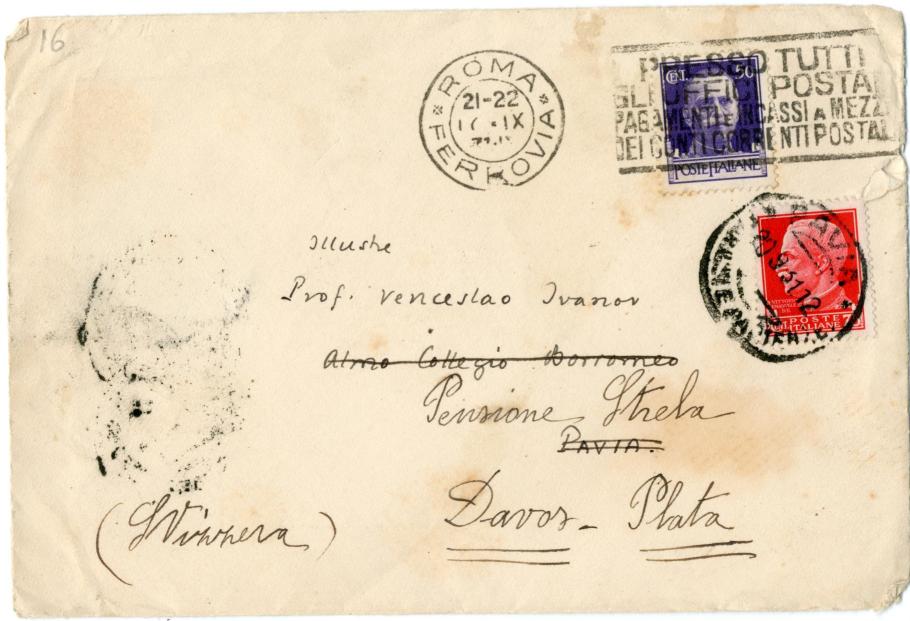 16
ROMA
FERROVIA
21-22
IX
PRESSO TUTTI
GLI UFFICI POSTALI
PAGAMENTI E INCASSI A MEZZO
DEI CONTI CORRENTI POSTALI
CENT. 50
POSTE ITALIANE
PAVIA
20 9 31 12
POSTE
ITALIANE 75
Illustre
Prof. Venceslao Ivanov
Almo Collegio Borromeo
Pensione Strela
PAVIA.
Davos - Platz
(Svizzera)